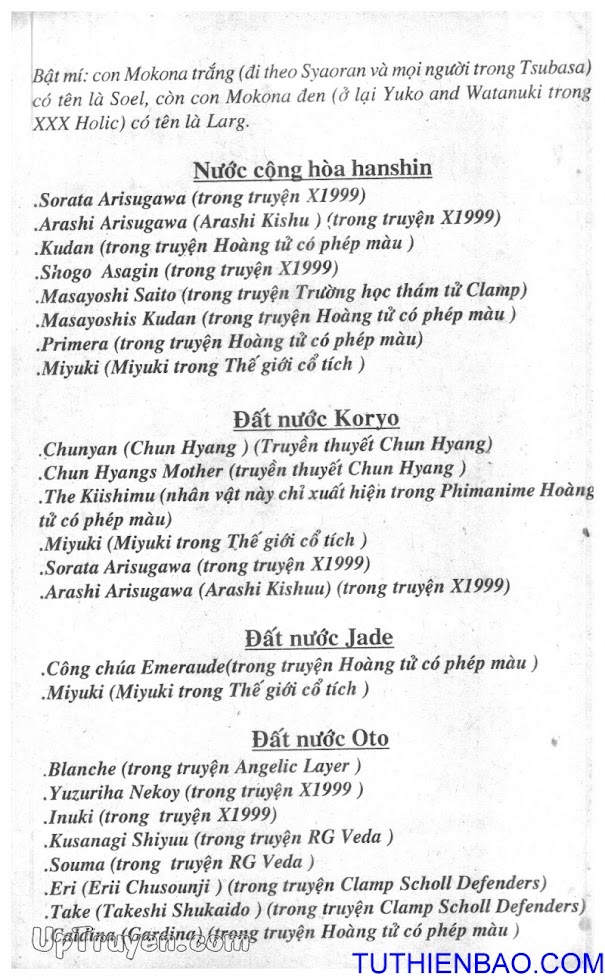 Bật mí: con Mokona trắng (đi theo Syaoran và mọi người trong Tsubasa)
có tên là Soel, còn con Mokona đen (ở lại Yuko and Watanuki trong
XXX Holic) có tên là Larg.
Nước cộng hòa hanshin
.Sorata Arisugawa (trong truyện X1999)
.Arashi Arisugawa (Arashi Kishu ) (trong truyện X1999)
.Kudan (trong truyện Hoàng tử có phép màu )
.Shogo Asagin (trong truyện X1999)
.Masayoshi Saito (trong truyện Trường học thám tử Clamp)
.Masayoshis Kudan (trong truyện Hoàng tử có phép màu )
.Primera (trong truyện Hoàng tử có phép màu)
.Miyuki (Miyuki trong Thế giới cổ tích )
Đất nước Koryo
.Chunyan (Chun Hyang ) (Truyền thuyết Chun Hyang)
.Chun Hyangs Mother (truyền thuyết Chun Hyang )
.The Kiishimu (nhân vật này chỉ xuất hiện trong Phimanime Hoàng
tử có phép màu)
.Miyuki (Miyuki trong Thế giới cổ tích )
.Sorata Arisugawa (trong truyện X1999)
.Arashi Arisugawa (Arashi Kishuu) (trong truyện X1999)
Đất nước Jade
.Công chúa Emeraude(trong truyện Hoàng tử có phép màu )
.Miyuki (Miyuki trong Thế giới cổ tích )
Đất nước Oto
.Blanche (trong truyện Angelic Layer )
.Yuzuriha Nekoy (trong truyện X1999 )
.Inuki (trong truyện X1999)
.Kusanagi Shiyuu (trong truyện RG Veda )
.Souma (trong truyện RG Veda )
.Eri (Erii Chusounji ) (trong truyện Clamp Scholl Defenders)
.Take (Takeshi Shukaido ) (trong truyện Clamp Scholl Defenders)
.Caldina (Gardina) (trong truyện Hoàng tử có phép màu )
UpTruyen.com
TUTHIENBAO.COM